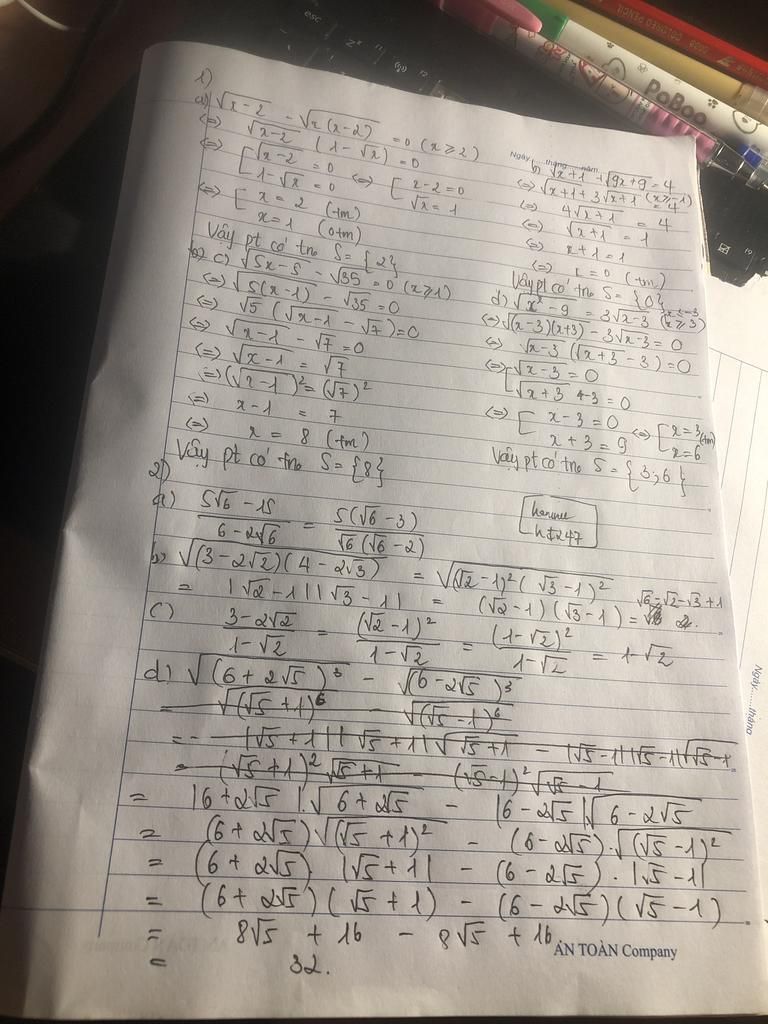 1)
a) √x-2 - √x(x-2) = 0 (x ≥ 2)
⇔ √x-2 (1 - √x) = 0
⇔ [ √x-2 = 0
1 - √x = 0 ⇔ [ x-2 = 0
√x = 1
⇔ [ x = 2 (tm)
x = 1 (0tm)
Vậy pt có tn₀ S = {2}
c) √5x-5 - √35 = 0 (x ≥ 1)
⇔ √5(x-1) - √35 = 0
⇔ √5 (√x-1 - √7) = 0
⇔ √x-1 - √7 = 0
⇔ √x-1 = √7
⇔ (√x-1)² = (√7)²
⇔ x-1 = 7
⇔ x = 8 (tm)
Vậy pt có tn₀ S = {8}
Ngày.....tháng.....năm.....
b) √x+1 + √9x+9 = 4
⇔ √x+1 + 3√x+1 = 4 (x ≥ -1)
⇔ 4√x+1 = 4
⇔ √x+1 = 1
⇔ x+1 = 1
⇔ x = 0 (tm)
Vậy pt có tn₀ S = {0}
d) √x²-9 = 3√x-3 (x ≤ -3 x ≥ 3)
⇔ √(x-3)(x+3) - 3√x-3 = 0
⇔ √x-3 (√x+3 - 3) = 0
⇔ [ √x-3 = 0
√x+3 - 3 = 0
⇔ [ x-3 = 0
x+3 = 9 ⇔ [ x = 3 (tm)
x = 6
Vậy pt có tn₀ S = {3; 6}
2)
a) 5√6 - 15 / 6 - 2√6 = 5(√6 - 3) / √6(√6 - 2)
b) √(3-2√2)(4-2√3) = √(√2-1)²(√3-1)²
= |√2-1||√3-1| = (√2-1)(√3-1) = √6-√2-√3+1
c) 3-2√2 / 1-√2 = (√2-1)² / 1-√2 = (1-√2)² / 1-√2 = 1-√2
d) √(6+2√5)³ - √(6-2√5)³
= √(√5+1)⁶ - √(√5-1)⁶
= |√5+1||√5+1|√√5+1 - |√5-1||√5-1|√√5-1
= (√5+1)²√√5+1 - (√5-1)²√√5-1
= |6+2√5|.√6+2√5 - |6-2√5|√6-2√5
= (6+2√5)√(√5+1)² - (6-2√5).√(√5-1)²
= (6+2√5) |√5+1| - (6-2√5).|√5-1|
= (6+2√5)(√5+1) - (6-2√5)(√5-1)
= 8√5 + 16 - 8√5 + 16
= 32.
AN TOÀN Company
Ngày.......tháng
PoBoo
COLORED PENCIL
esc